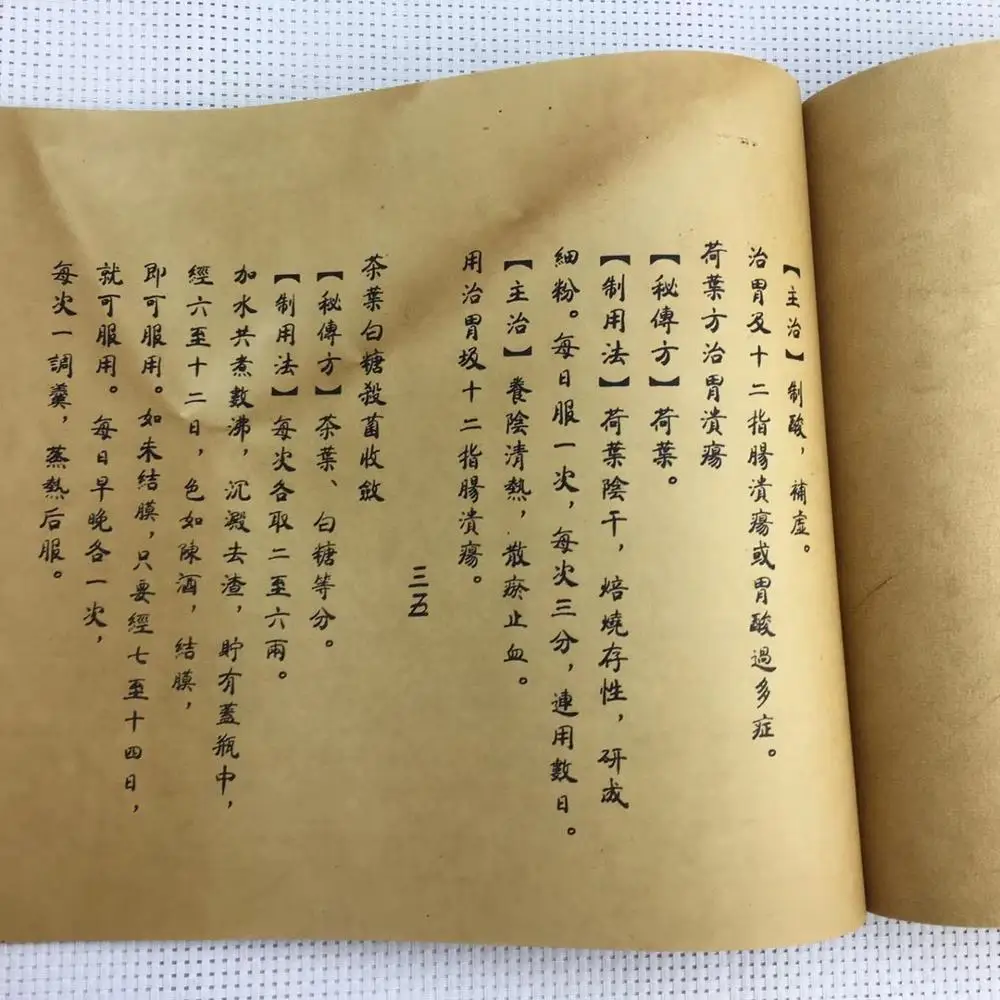 【主治】制酸，補虛。
治胃及十二指腸潰瘍或胃酸過多症。
荷葉方治胃潰瘍
【秘傳方】荷葉。
【制用法】荷葉陰干，焙燒存性，研成
細粉。每日服一次，每次三分，連用數日。
【主治】養陰清熱，散瘀止血。
用治胃圾十二指腸潰瘍。
三五
茶葉白糖殺菌收斂
【秘傳方】茶葉、白糖等分。
【制用法】每次各取二至六兩。
加水共煮數沸，沉澱去渣，貯有蓋瓶中，
經六至十二日，色如陳酒，結膜，
即可服用。如未結膜，只要經七至十四日，
就可服用。每日早晚各一次，
每次一調羹，蒸熱后服。